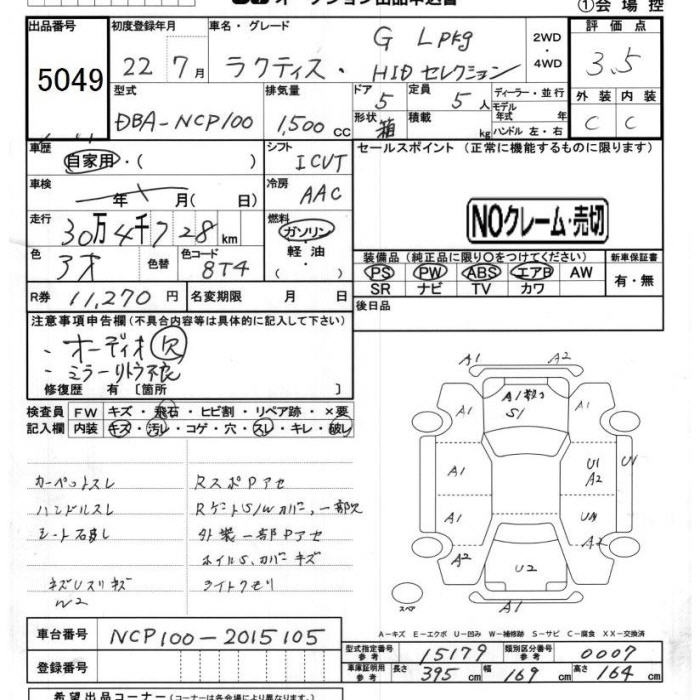 ①会場控
出品番号
5049
初度登録年月
22年 7月
車名・グレード
ラクティス・
G Lpkg
HIDセレクション
2WD
・
4WD
評価点
3.5
外装 内装
C C
型式
DBA-NCP100
排気量
1,500 cc
ドア
5
形状
箱
定員
5人
積載
kg
ディーラー・並行
モデル年式 年
ハンドル 左・右
車歴
自家用・( )
シフト
ICVT
車検
年 月( 日)
冷房
AAC
走行
30万4千728km
燃料
ガソリン・
軽油・
( )
色
色替
色コード
8T4
R券 11,270円
名変期限 月 日
セールスポイント (正常に機能するものに限ります)
NOクレーム・売切
装備品 (純正品に限り○をつけてください)
PS PW ABS エアB AW
SR ナビ TV カワ
新車保証書
有・無
後日品
注意事項申告欄(不具合内容等は具体的に記入して下さい)
・オーディオ欠
・ミラーリトラ不良
修復歴 有 [箇所 ]
検査員記入欄
FW キズ・飛石・ヒビ割・リペア跡・×要
内装 キズ・汚レ・コゲ・穴・スレ・キレ・破レ
カーペットスレ
ハンドルスレ
シート破レ
RスポPアセ
外装一部Pアセ
ホイルS、カバーキズ
ライトクモリ
W2
A1 A2
A1
S1
A1 A1
A1 U1
A2
U1
A1
A2 A2
U2
A1
スペア
A-キズ E-エクボ U-凹み W-補修跡 S-サビ C-腐食 XX-交換済
車台番号
NCP100-2015105
登録番号
型式指定番号参考 15179
類別区分番号参考 0007
車庫証明用参考 長さ 395cm 幅 169cm 高さ 164cm
希望出品コーナー(コーナーは各会場により異なります)